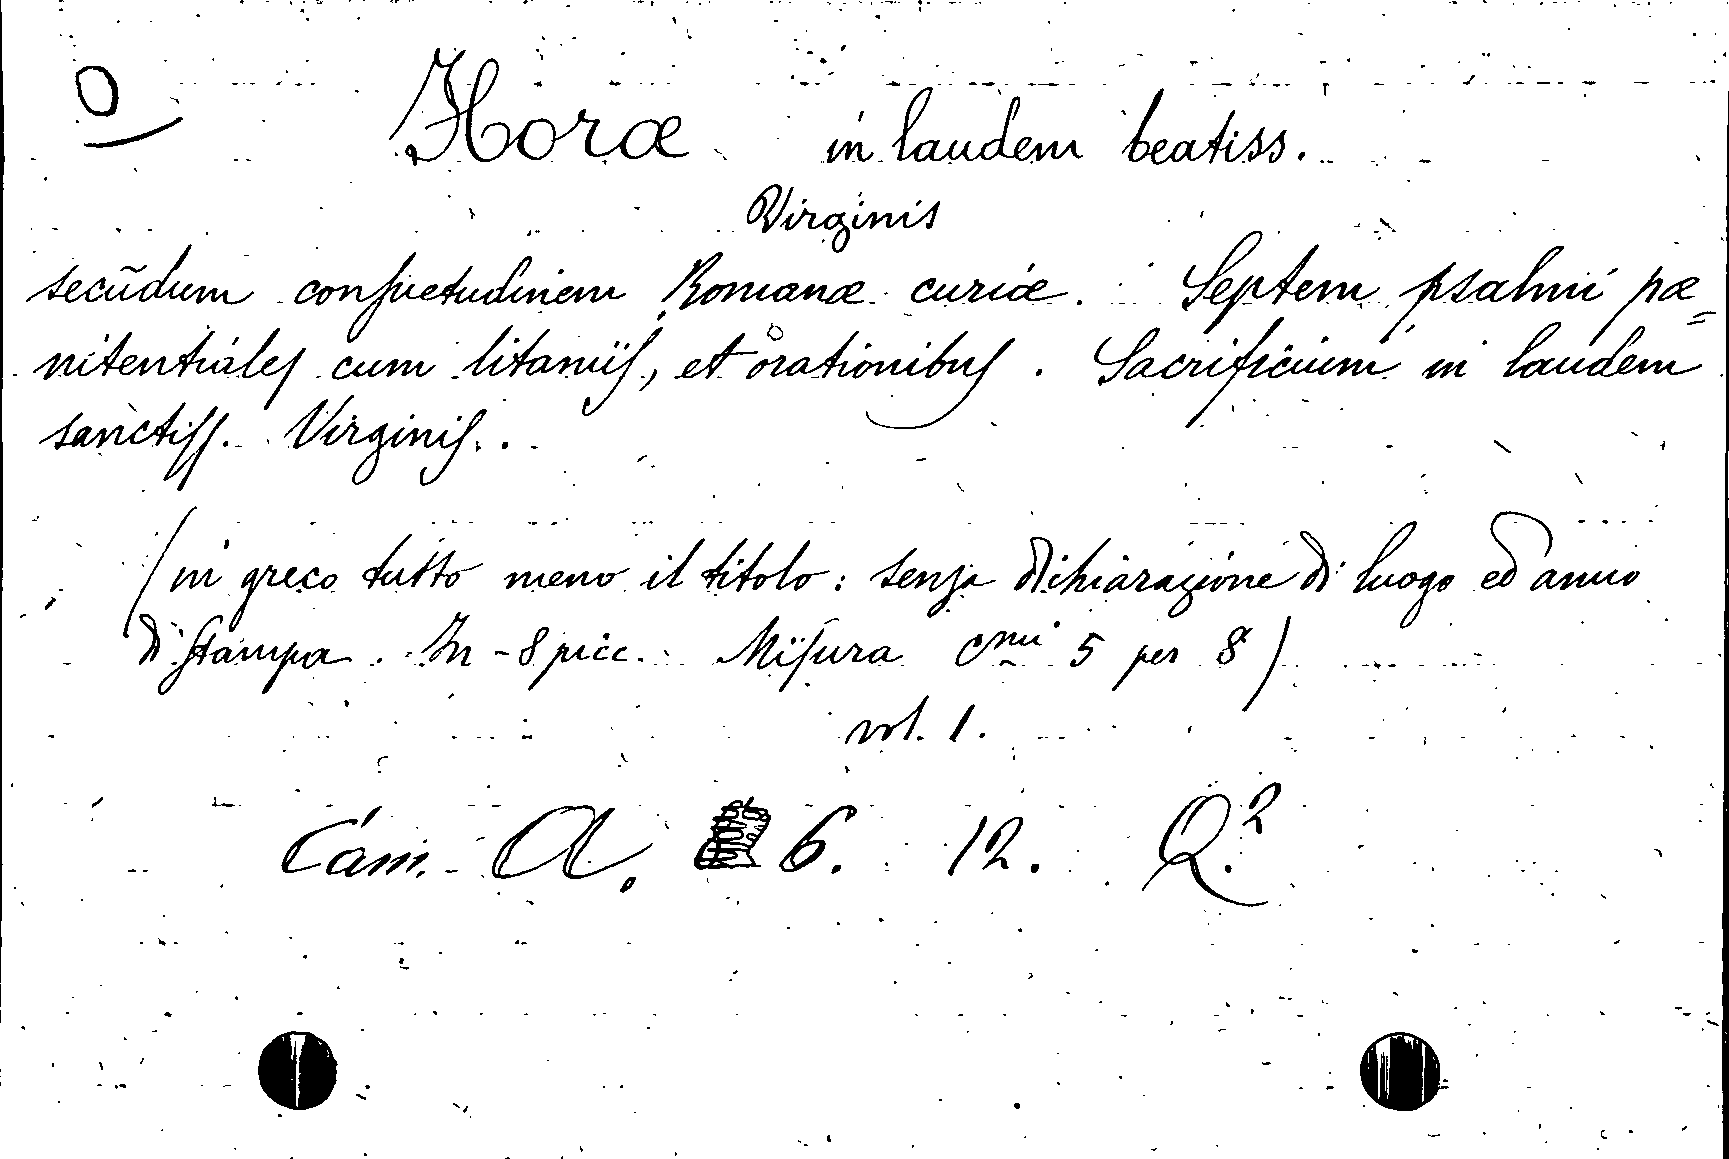 O
Horæ in laudem beatiss.
Virginis
secūdum conſuetudinem Romanæ curiæ. Septem psalmi pæ=
nitentialeſ cum litaniiſ, et orationibuſ. Sacrificium in laudem
sanctiſſ. Virginiſ.
(in greco tutto meno il titolo: senza dichiarazione di luogo ed anno
di ſtampa. In-8 picc. Miſura cmi 5 per 8)
vol. 1.
Cam. A. 6. 12. Q.2